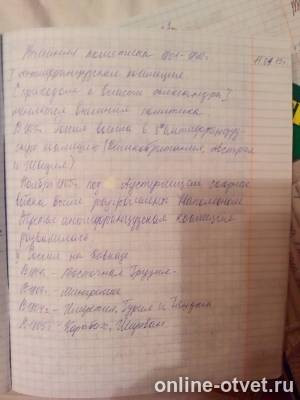 Внешняя политика 1801-1812г.
I антифранцузская коалиция
С приходом к власти Александра I
внешняя политика
В 1805г. Россия вошла в 3 антифранцуз-
скую коалицию (Великобритания, Австрия
и Швеция)
Ноябрь 1805г под Аустерлицем союзные
войска были разгромлены Наполеоном
Третья антифранцузская коалиция
развалилась
Россия на Кавказе
В 1801г. - Восточная Грузия.
В 1803г. - Мингрелия
В 1804г. - Имеретия, Гурия и Гянджа
В 1805г. - Карабах, Ширван
online-otvet.ru